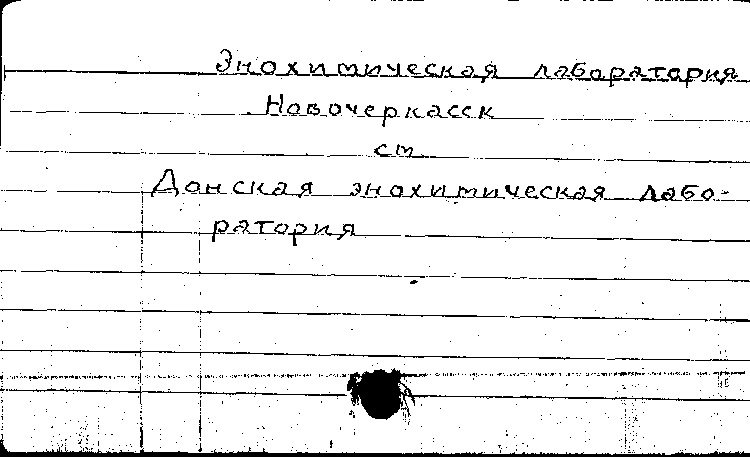 Энохимическая лаборатория
Новочеркасск
см
Донская энохимическая лабо-
ратория